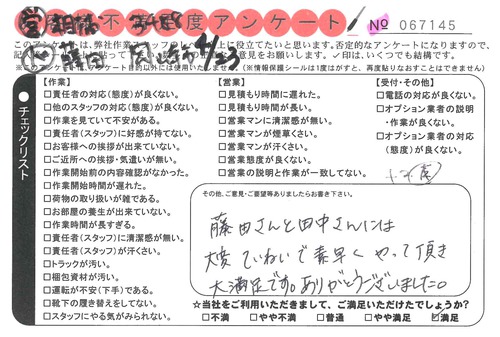 不満度アンケート
№ 067145
このアンケートは、弊社作業スタッフ
役立てたいと思います。否定的なアンケートになりますので、
意見をお願いします。✓印は、いくつでも結構です。
アンケート目的以外には使用いたしません
(※情報保護シールは1度はがすと、再度貼りなおすことはできません)
チェックリスト
【作業】
□責任者の対応(態度)が良くない。
□他のスタッフの対応(態度)が良くない。
□作業を見ていて不安がある。
□責任者(スタッフ)に好感が持てない。
□お客様への挨拶が出来ていない。
□ご近所への挨拶・気遣いが無い。
□作業開始前の内容確認がなかった。
□作業開始時間が遅れた。
□荷物の取り扱いが雑である。
□お部屋の養生が出来ていない。
□作業時間が長すぎる。
□責任者(スタッフ)に清潔感が無い。
□責任者(スタッフ)が汗くさい。
□トラックが汚い。
□梱包資材が汚い。
□運転が不安(下手)である。
□靴下の履き替えをしてない。
□スタッフにやる気がみられない。
【営業】
□見積もりに遅れた。
□見積もり時間が長い。
□営業マンに清潔感が無い。
□営業マンが煙草くさい。
□営業マンが汗くさい。
□営業態度が良くない。
□営業の説明と作業が一致してない。
【受付・その他】
□電話の対応が良くない。
□オプション業者の説明
・作業が良くない。
□オプション業者の対応
(態度)が良くない。
その他、ご意見・ご要望等ありましたらお書き下さい。
藤田さんと田中さんには
大変ていねいで素早くやって頂き
大満足です。ありがとうございました。
☆当社をご利用いただきまして、ご満足いただけたでしょうか?
□不満 □やや不満 □普通 □やや満足 ☑満足